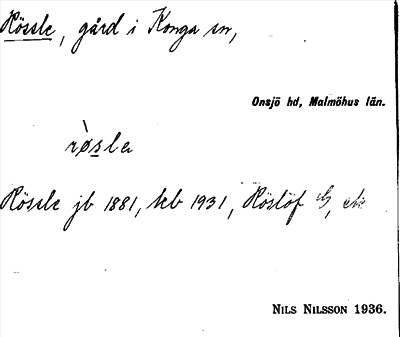 Rössle, gård i Konga sn,
Onsjö hd, Malmöhus län.
rø̀sla
Rössle jb 1881, kb 1931, Röslöf
NILS NILSSON 1936.